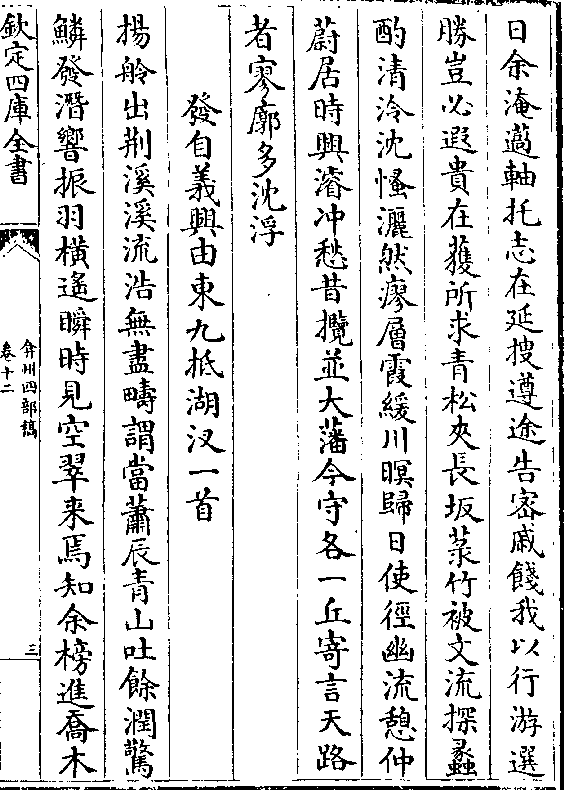 日余淹薖軸托志在延搜遵途告密戚餞我以行游選
勝豈必遐貴在獲所求青松夾長坂菉竹被文流探蠡
酌清泠沈慅灑然瘳層霞緩川暝歸日使徑幽流憩仲
蔚居時興濬冲愁昔攬並大藩今守各一丘寄言天路
者寥廓多沈浮
發自義興由東九抵湖汊一首
揚舲出荆溪溪流浩無盡疇謂當蕭辰青山吐餘潤驚
鱗發潛響振羽橫遙瞬時見空翠来焉知余榜進喬木
欽定四庫全書
弇州四部稿
卷十二
三